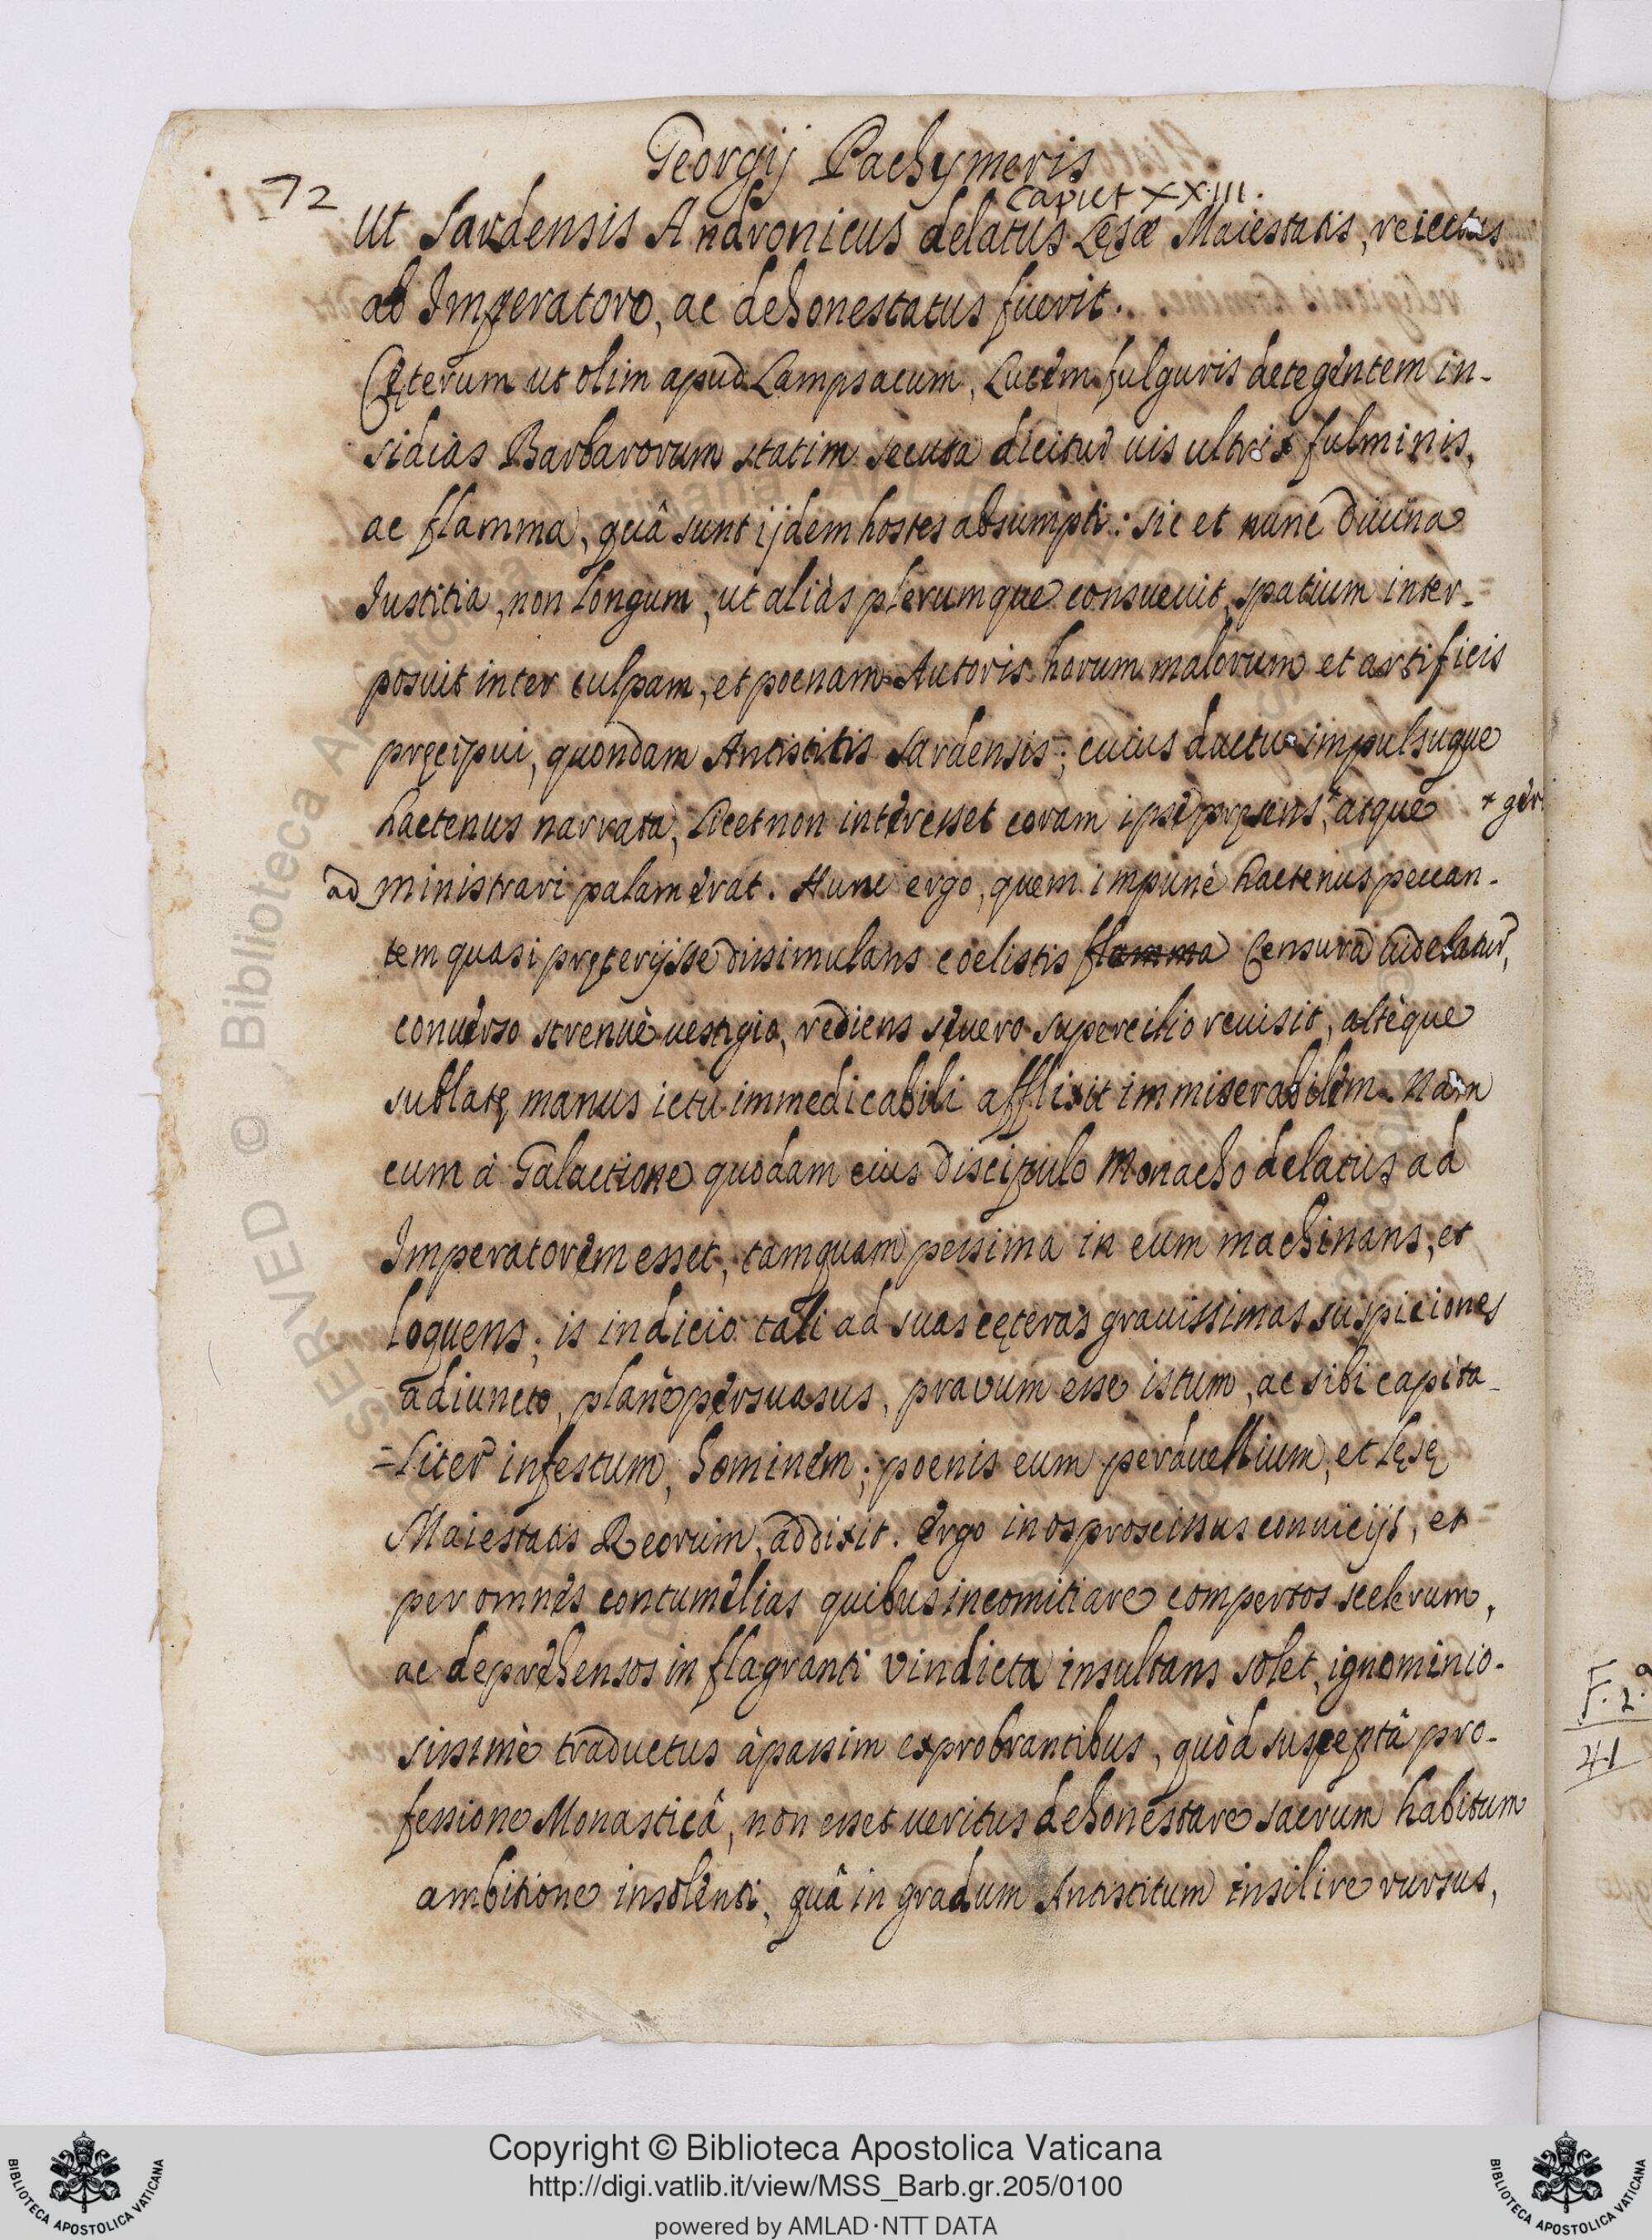 Georgij Pachymeris
72
Caput XXIII.
Ut Sardensis Andronicus delatus Lęsæ Maiestatis, reiectus
ab Imperatore, ac dehonestatus fuerit.
Cęterum ut olim apud Lampsacum, Lucem fulguris detegentem in-
sidias Barbarorum statim secuta dicitur uis ultrix fulminis,
ac flamma, quâ sunt ijdem hostes absumpti: sic et nunc diuina
Iustitia, non longum, ut aliàs plerumque consueuit, spatium inter-
posuit inter culpam, et poenam Autoris horum malorum et artificis
pręcipui, quondam Antistitis Sardensis; cuius ductu impulsuque
hactenus narrata, licet non interesset coram ipse pręsens, + atque + geri
ad ministrari palam erat. Hunc ergo, quem impunè hactenus peccan-
tem quasi pręterijsse dissimulans coelistis flamma Censura uidebatur,
conuerso strenuè uestigio, rediens seuero supercilio reuisit, altèque
sublatę manus ictu immedicabili afflixit immiserabilem. Nam
cum à Galactione quodam eius discipulo Monacho delatus ad
Imperatorem esset, tamquam pessima in eum machinans, et
loquens; is indicio tali ad suas cęteras grauissimas suspiciones
adiuncto, planè persuasus, pravum esse istum, ac sibi capita-
=liter infestum, hominem; poenis eum perduellium, et Lęsę
Maiestatis Reorum, addixit. Ergo in os proscissus conuicijs, et
per omnes contumelias quibus incomitiare compertos scelerum,
ac deprehensos in flagranti vindicta insultans solet, ignominio-
sissimè traductus à passim exprobrantibus, quòd susceptâ pro-
fessione Monasticâ, non esset ueritus dehonestare sacrum habitum
ambitione insolenti, quâ in gradum Antistitum insilire rursus,
F. 2.a
41
Copyright © Biblioteca Apostolica Vaticana
http://digi.vatlib.it/view/MSS_Barb.gr.205/0100
powered by AMLAD·NTT DATA
BIBLIOTECA APOSTOLICA VATICANA
BIBLIOTECA APOSTOLICA VATICANA